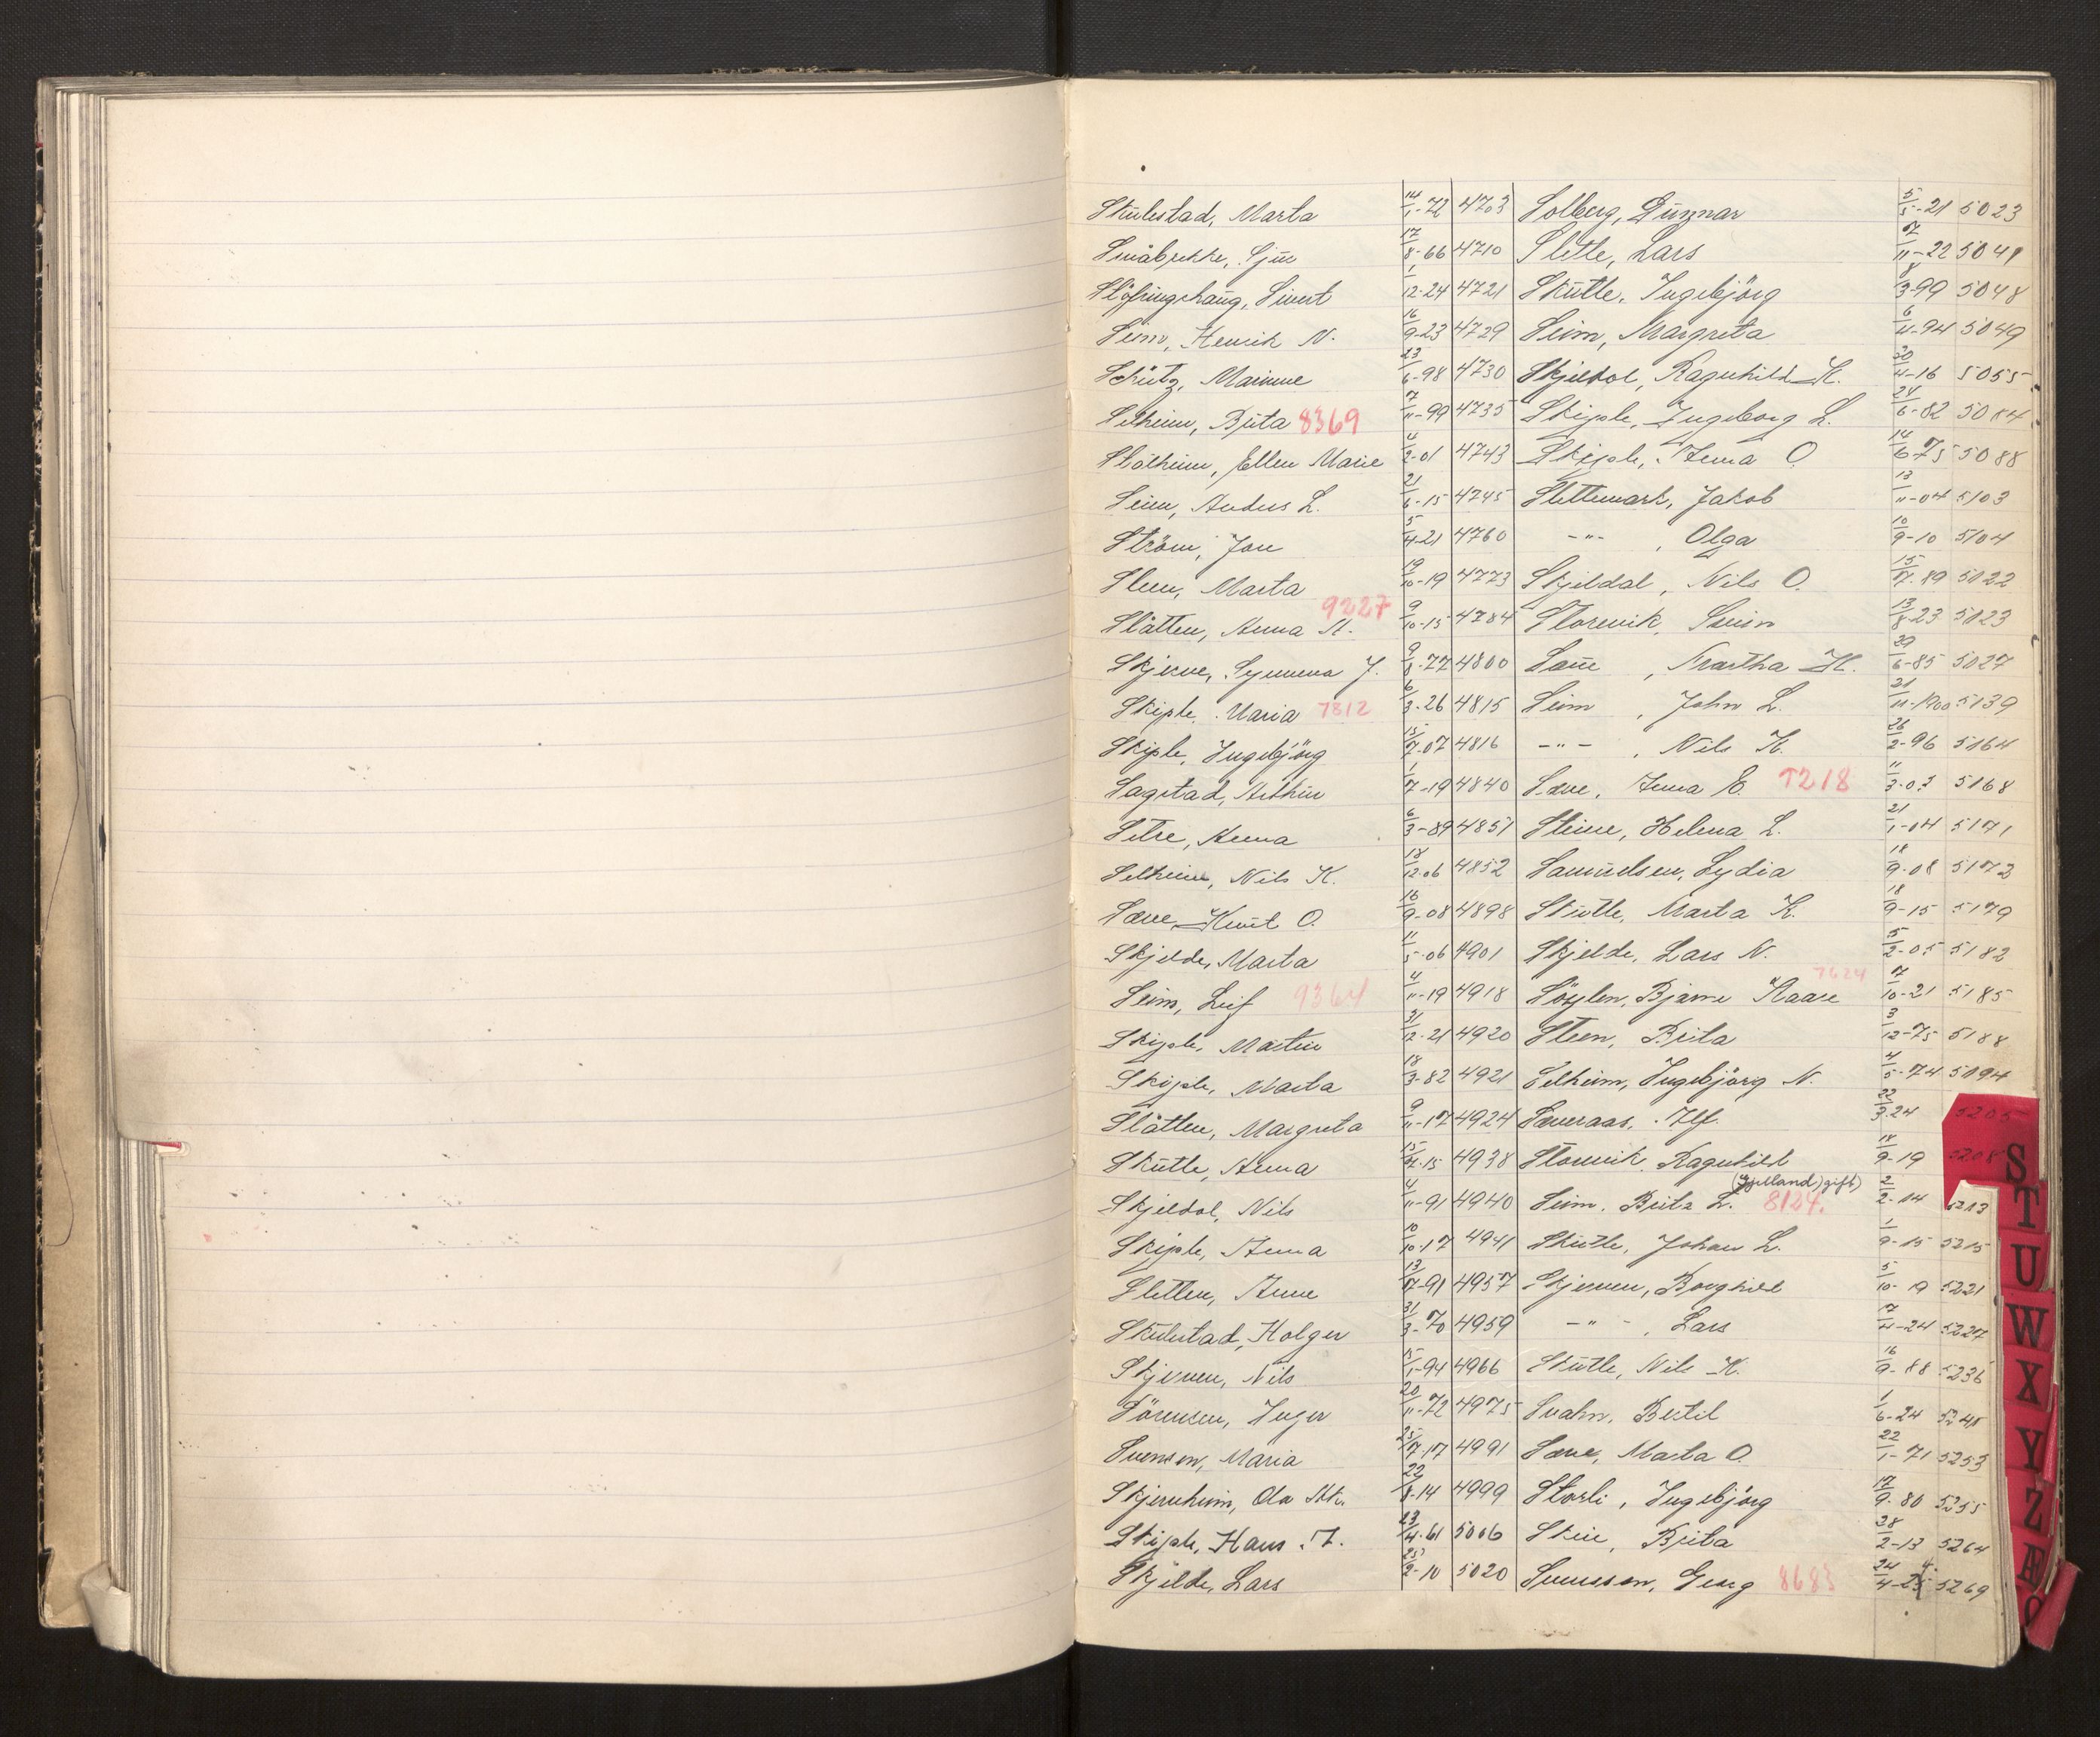 Skulestad, Marta 14/1-72 4703
Småbrekke, Sjur 17/8-66 4710
Sivert 1/12-24 4721
Seim, Henrik N. 16/9-23 4729
Schütz, Marinne 23/6-98 4730
Selheim, Brita 8369 7/11-99 4735
Slötheim, Ellen Marie 4/2-01 4743
Seim, Anders L. 21/6-15 4745
Ström, Jon 5/4-21 4760
Steen, Marta 19/10-19 4773
Slåtten, Anna A. 9227 9/10-15 4784
Skjerve, Synneva J. 9/8-77 4800
Skiple, Maria 7812 6/3-26 4815
Skiple, Ingebjörg 15/7-07 4816
Sagstad, Arthur 1/7-19 4840
Setre, Anna 6/3-89 4851
Selheim, Nils K. 18/12-06 4852
Sæve, Knut O. 16/9-08 4898
Skjelde, Marta 11/5-06 4901
Seim, Leif 9364 4/11-19 4918
Skiple, Martin 31/12-21 4920
Skiple, Marta 18/3-82 4921
Slåtten, Margreta 9/11-17 4924
Skutle, Anna 15/4-15 4938
Skjeldal, Nils 4/11-91 4940
Skiple, Anna 10/10-17 4941
Sletten, Anne 13/7-91 4957
Skulestad, Holger 31/3-70 4959
Skjerven, Nils 15/1-94 4966
Sörensen, Inger 20/11-72 4975
Svensen, Maria 25/7-17 4991
Skjerveheim, Ola 22/8-14 4999
Skiple, Hans T. 23/4-61 5006
Skjelde, Lars 25/2-10 5020
Solberg, Gunnar 5/5-21 5023
Slette, Lars 7/11-22 5041
Skutle, Ingebjörg 8/3-99 5048
Seim, Margreta 6/4-94 5049
Skjeldal, Ragnhild K. 30/4-16 5055
Skiple, Ingeborg L. 24/6-82 5084
Skiple, Anna O. 14/6-75 5088
Slettemark, Jakob 13/11-04 5103
-"- , Olga 10/9-10 5104
Skjeldal, Nils O. 15/7-89 5022
Storevik, Svein 13/8-23 5123
Saue, Martha K. 29/6-85 5027
Seim, John L. 21/11-1900 5139
-"- , Nils K. 26/2-96 5164
Sæve, Anna E. 7218 11/3-03 5168
Steine, Helena L. 21/1-04 5171
Samuelsen, Lydia 18/9-08 5173
Skutle, Marta K. 18/9-15 5179
Skjelde, Lars N. 5/2-05 5182
Bjarne Kaare 7624 7/10-21 5185
Steen, Brita 3/12-75 5188
Selheim, Ingebjörg N. 4/5-74 5194
Sæveraas, Alf 22/3-24 5205
Storevik, Ragnhild 14/9-19 5208
(Gjelland) gift)
Seim, Brita L. 8124. 2/2-14 5213
Skutle, Johan L. 1/9-15 5215
Skjerven, Borghild 5/10-19 5221
-"- , Lars 17/4-24 5227
Skutle, Nils K. 16/9-88 5236
Svahn, Bertil 1/6-24 5245
Sæve, Marta O. 22/1-71 5253
Storli, Ingebjörg 17/9-80 5255
Skeie, Brita 28/2-13 5264
Svensson, Georg 8685 24/4-24 5269
S
T
U
W
X
Y
Z
Æ